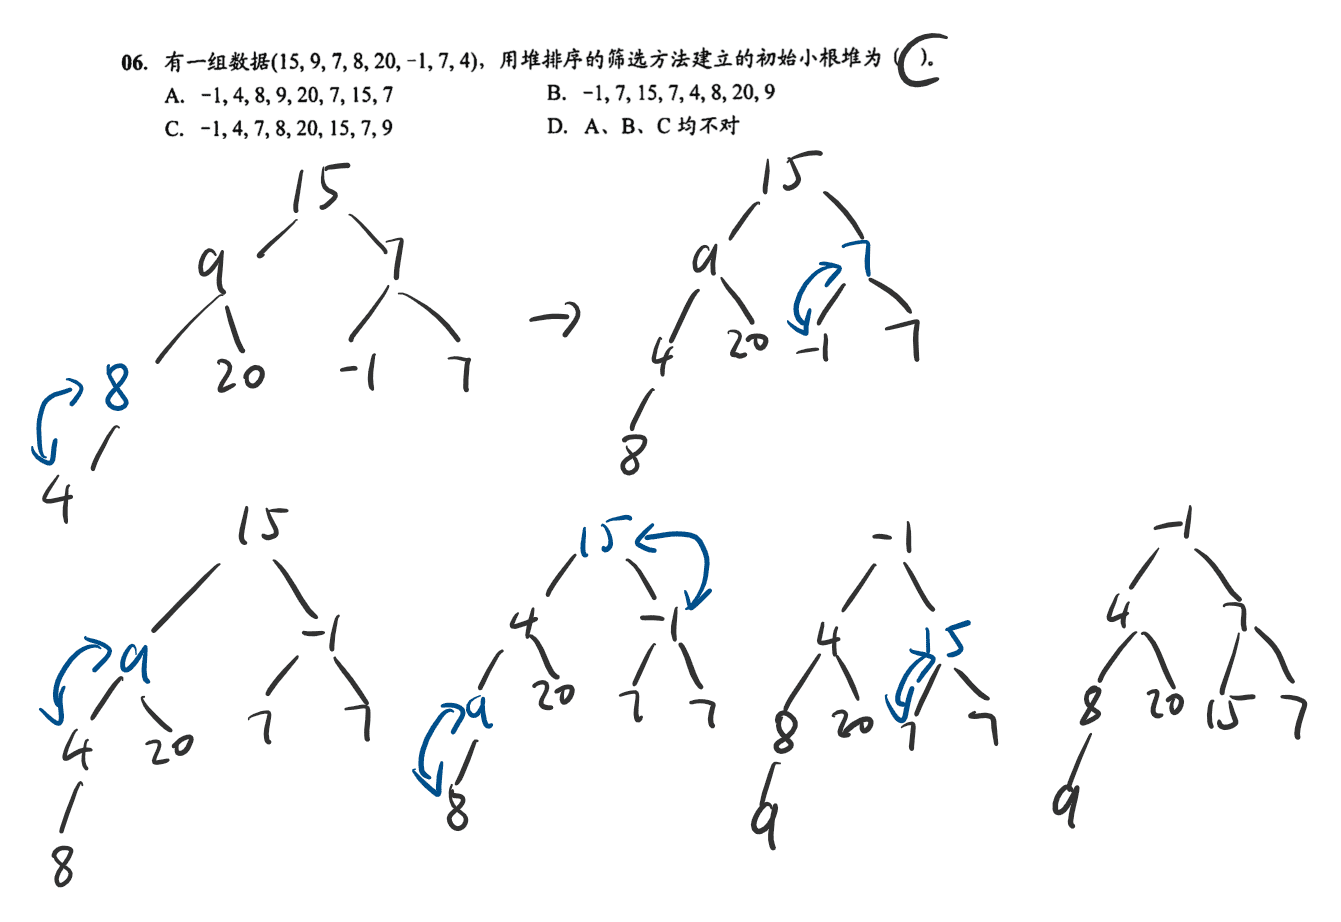 06. 有一组数据(15, 9, 7, 8, 20, -1, 7, 4)，用堆排序的筛选方法建立的初始小根堆为（C）。
A. -1, 4, 8, 9, 20, 7, 15, 7
B. -1, 7, 15, 7, 4, 8, 20, 9
C. -1, 4, 7, 8, 20, 15, 7, 9
D. A、B、C 均不对
15
9 7
8 20 -1 7
4
→
15
9 7
4 20 -1 7
8
15
9 -1
4 20 7 7
8
15
4 -1
9 20 7 7
8
-1
4 15
8 20 7 7
9
-1
4 7
8 20 15 7
9